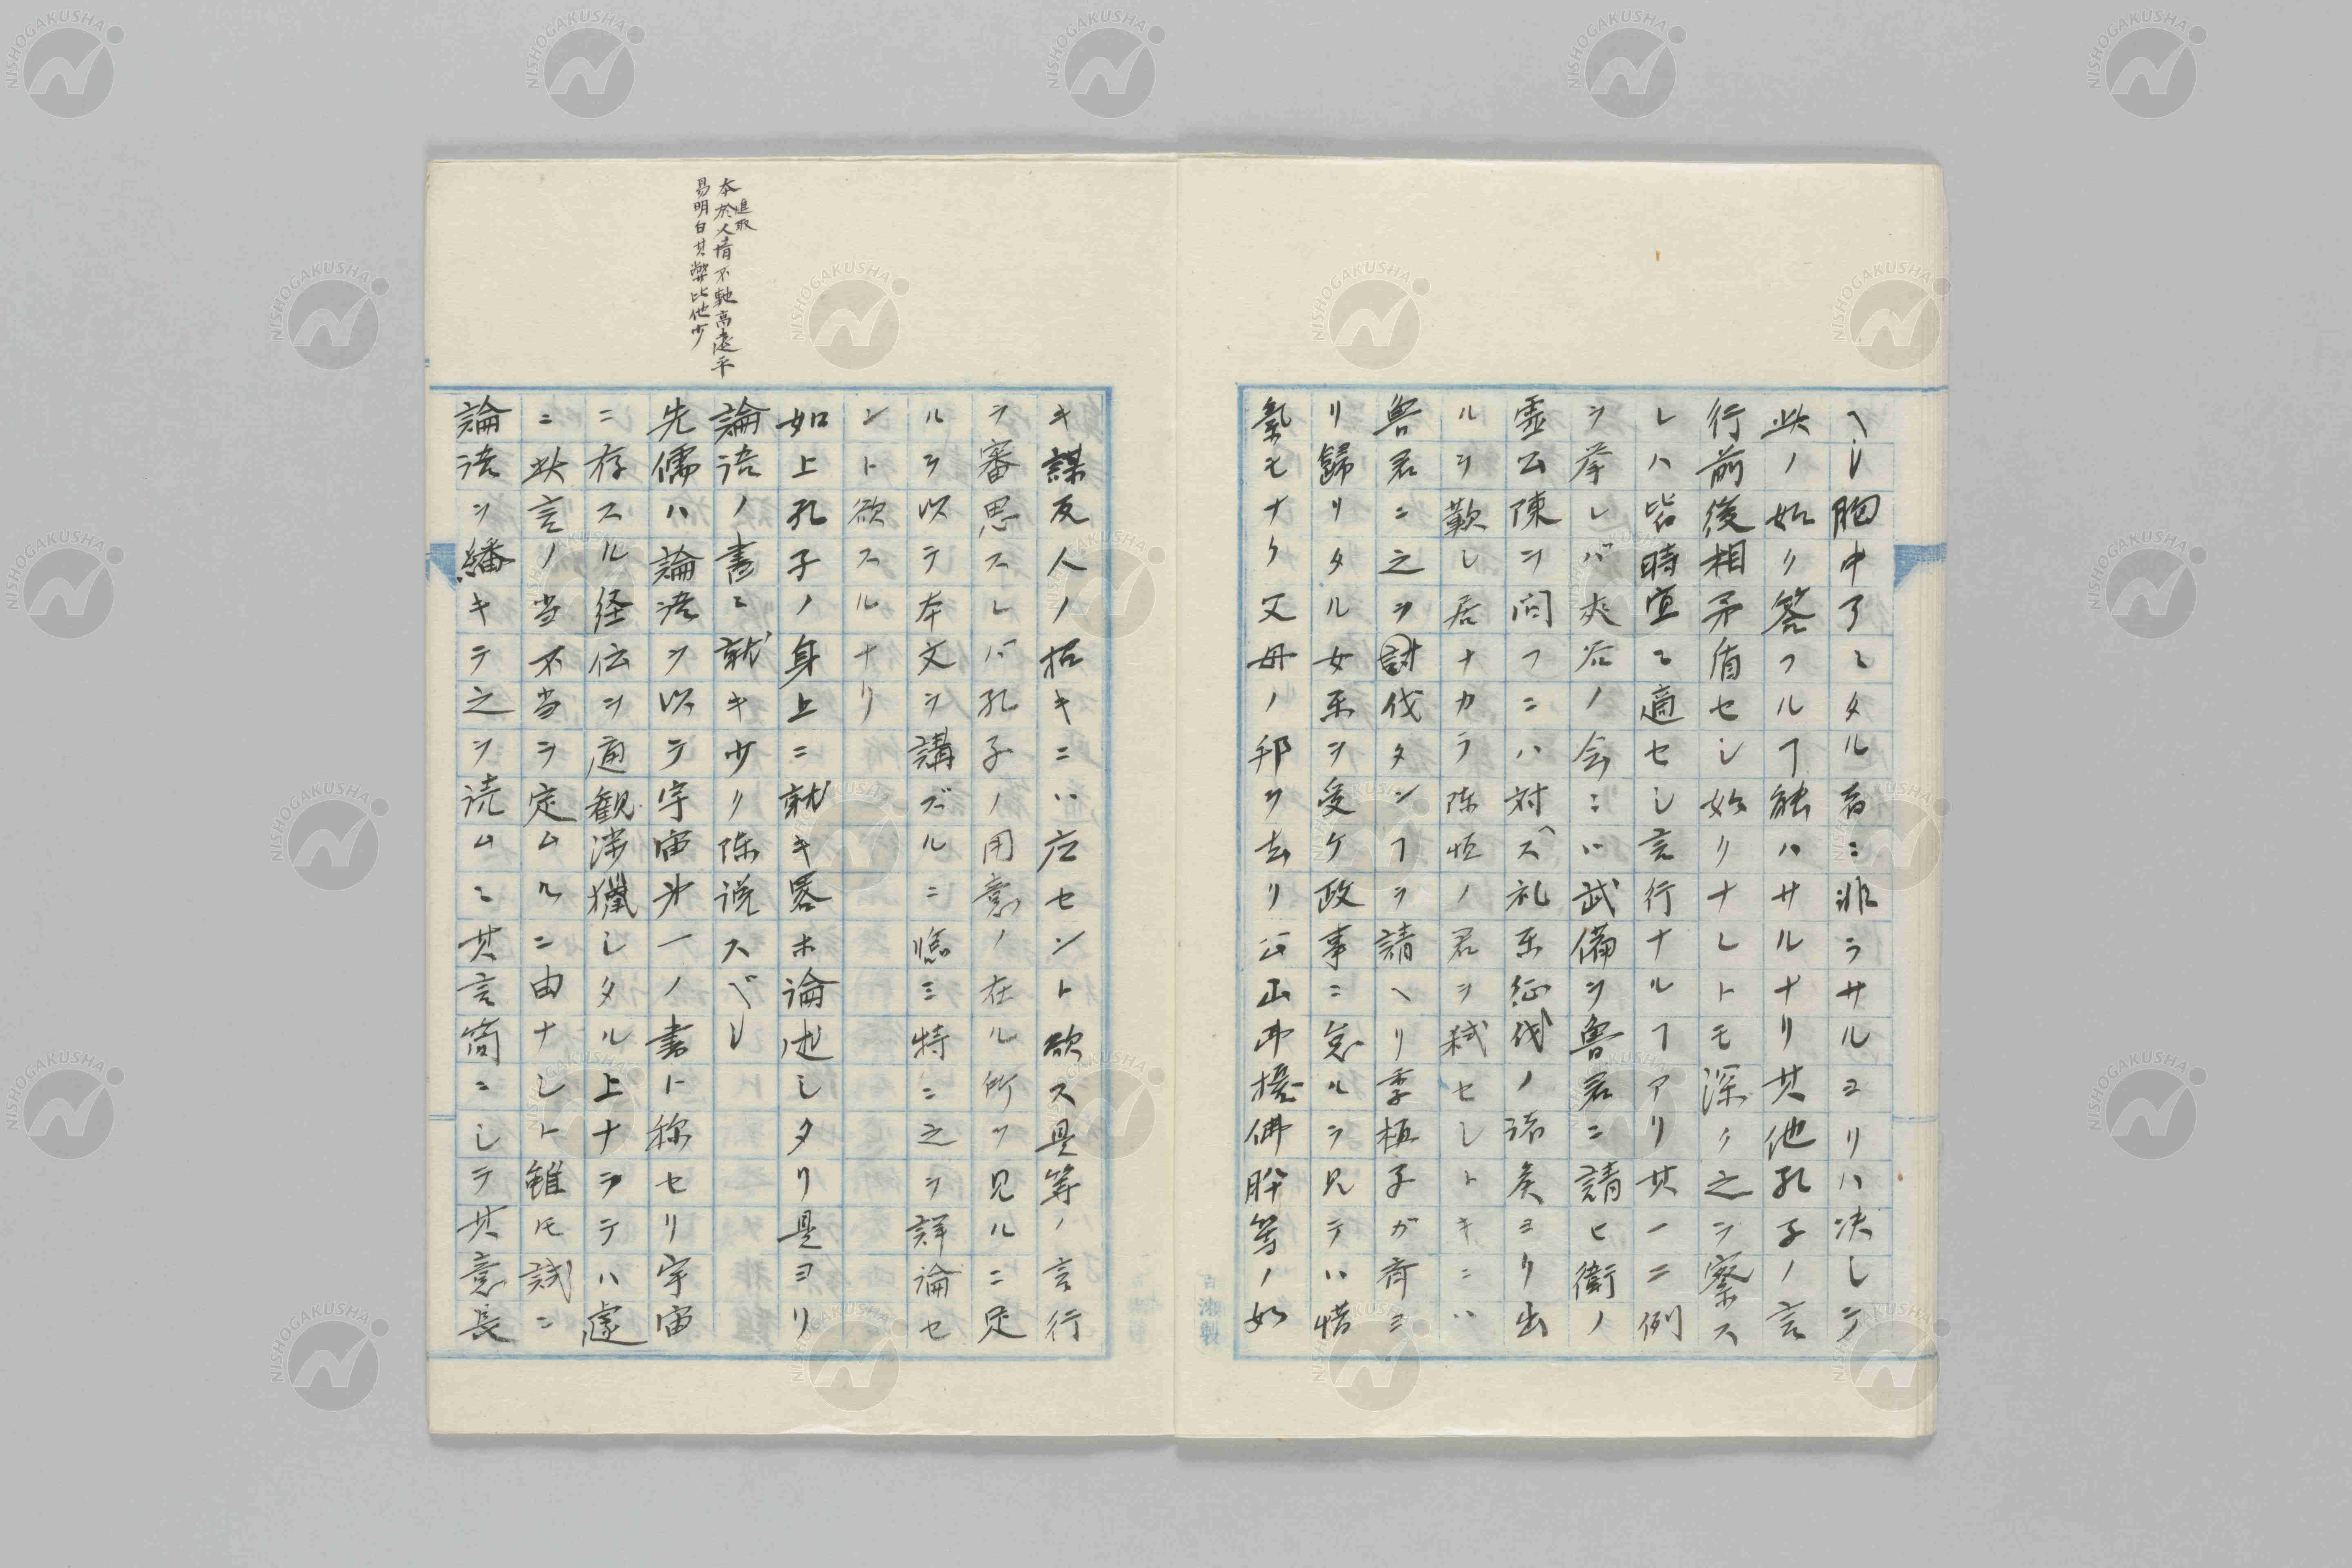 ヘシ胸中了々タル者ニ非ラサルヨリハ决シテ
此ノ如ク答フルヿ能ハサルナリ其他孔子ノ言
行前後相矛盾セシ如クナレトモ深ク之ヲ察ス
レハ皆時宜ニ適セシ言行ナルヿアリ其一二例
ヲ挙レバ夾谷ノ会ニハ武備ヲ魯君ニ請ヒ衛ノ
霊公陳ヲ問フニハ対スヘ礼楽征伐ノ諸侯ヨリ出
ルヲ歎シ居ナカラ陳恒ノ君ヲ弑セシトキニハ
魯君ニ之ヲ討伐タンヿヲ請ヘリ季桓子ガ斉ヨ
リ歸リタル女楽ヲ受ケ政事ニ怠ルヲ見テハ惜
氣モナク父母ノ邦ヲ去リ公山弗擾佛肸等ノ如
キ謀反人ノ招キニハ応セント欲ス是等ノ言行
ヲ審思スレバ孔子ノ用意ノ在ル所ヲ見ルニ足
ルヲ以テ本文ヲ講ズルニ臨ミ特ニ之ヲ詳論セ
ント欲スルナリ
如上孔子ノ身上ニ就キ畧ホ論述シタリ是ヨリ
論語ノ書ニ就キ少リ陳说スベシ
先儒ハ論語ヲ以テ宇宙第一ノ書ト称セリ宇宙
ニ存スル経伝ヲ遍観渉獵シタル上ナラテハ遽
ニ此言ノ当不当ヲ定ムルニ由ナシト雖モ試ニ
論語ヲ繙キテ之ヲ読ムニ其言簡ニシテ其意長
進取
本於人情不馳高遠平
易明白其弊比他少